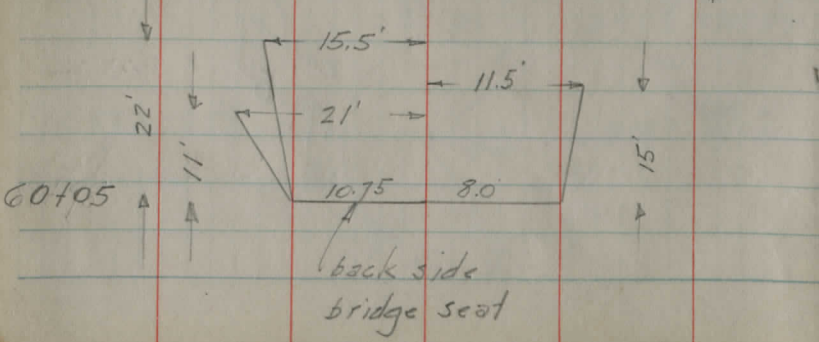 15.5'
11.5'
22'
11'
21'
15'
60+05
10.75 8.0
back side
bridge seat